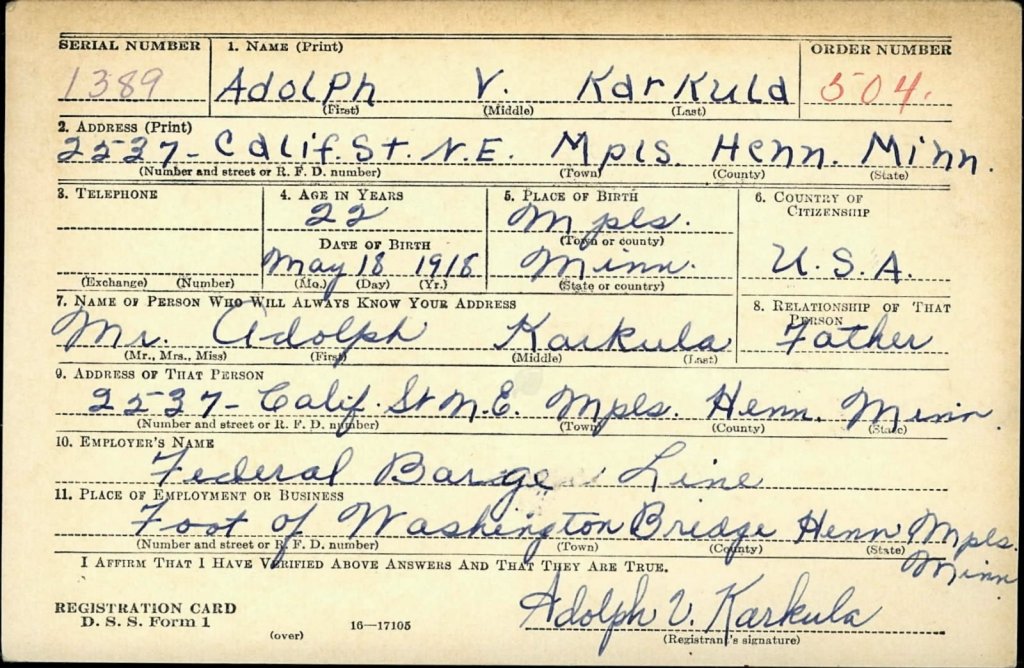 SERIAL NUMBER 1. NAME (Print) ORDER NUMBER
1389 Adolph V. Karkula 504.
(First) (Middle) (Last)
2. ADDRESS (Print)
2537- Calif. St. N.E. Mpls. Henn. Minn.
(Number and street or R. F. D. number) (Town) (County) (State)
3. TELEPHONE 4. AGE IN YEARS 5. PLACE OF BIRTH 6. COUNTRY OF CITIZENSHIP
22 Mpls.
(Town or county)
DATE OF BIRTH
May 18 1918 Minn. U.S.A.
(Exchange) (Number) (Mo.) (Day) (Yr.) (State or country)
7. NAME OF PERSON WHO WILL ALWAYS KNOW YOUR ADDRESS 8. RELATIONSHIP OF THAT PERSON
Mr. Adolph Karkula Father
(Mr., Mrs., Miss) (First) (Middle) (Last)
9. ADDRESS OF THAT PERSON
2537- Calif. St N.E. Mpls. Henn. Minn.
(Number and street or R. F. D. number) (Town) (County) (State)
10. EMPLOYER'S NAME
Federal Barge Line
11. PLACE OF EMPLOYMENT OR BUSINESS
Foot of Washington Bridge Henn Mpls.
(Number and street or R. F. D. number) (Town) (County) (State) Minn
I AFFIRM THAT I HAVE VERIFIED ABOVE ANSWERS AND THAT THEY ARE TRUE.
REGISTRATION CARD Adolph V. Karkula
D. S. S. Form 1 (over) 16—17105 (Registrant's signature)